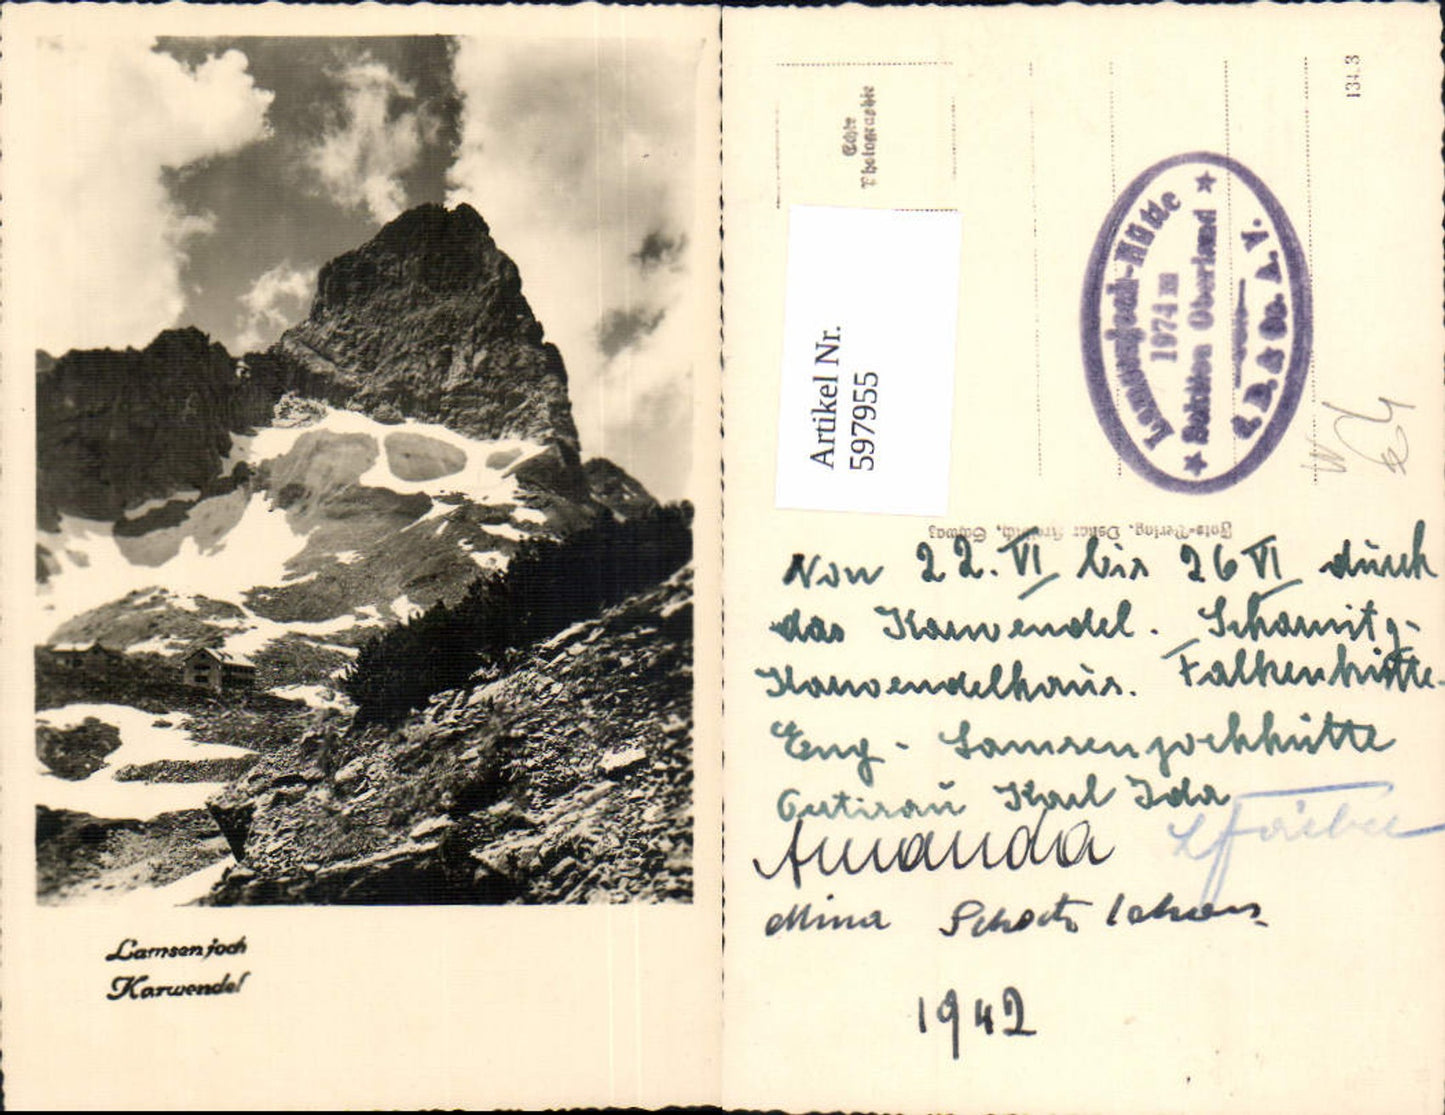 Lamsenjoch
Karwendel
Echte
Photographie
134 3
Artikel Nr.
597955
Lamsenjoch-Hütte
1974 m
★ Sektion Oberland ★
d. D. & Oe. A. V.
Foto-Verlag, Oskar Schwaz
Von 22. VI bis 26 VI durch
das Karwendel. Scharnitz-
Karwendelhaus. Falkenhütte-
Eng - Lamsenjochhütte
Karl Ida
Amanda
Mina
1942